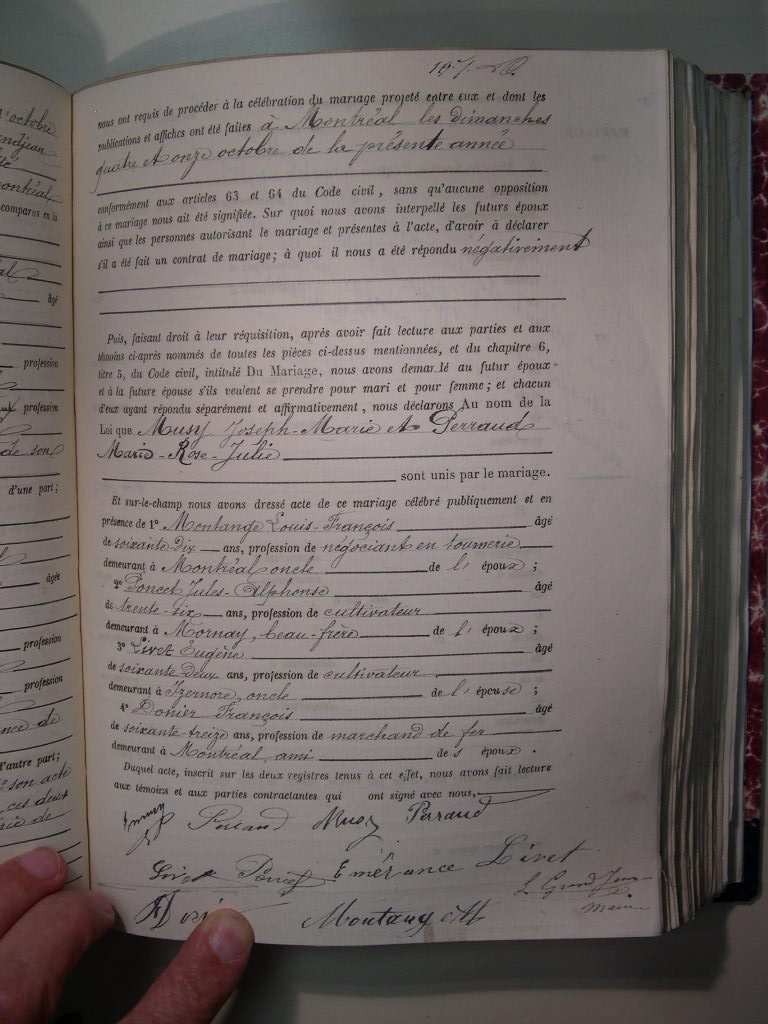 octobre
Grandjean
té
Montréal
comparus en la
al
âgé
profession
profession
de son
d'une part;
âgée
profession
profession
ence de
d'autre part;
son acte
ces deux
rie de
nous ont requis de procéder à la célébration du mariage projeté entre eux et dont les
publications et affiches ont été faites à Montréal les dimanches
quatre et onze octobre de la présente année
conformément aux articles 63 et 64 du Code civil, sans qu'aucune opposition
à ce mariage nous ait été signifiée. Sur quoi nous avons interpellé les futurs époux
ainsi que les personnes autorisant le mariage et présentes à l'acte, d'avoir à déclarer
s'il a été fait un contrat de mariage; à quoi il nous a été répondu négativement
Puis, faisant droit à leur réquisition, après avoir fait lecture aux parties et aux
témoins ci-après nommés de toutes les pièces ci-dessus mentionnées, et du chapitre 6,
titre 5, du Code civil, intitulé Du Mariage, nous avons demandé au futur époux
et à la future épouse s'ils veulent se prendre pour mari et pour femme; et chacun
d'eux ayant répondu séparément et affirmativement, nous déclarons Au nom de la
Loi que Musy Joseph-Marie et Perraud
Marie-Rose-Julie
sont unis par le mariage.
Et sur-le-champ nous avons dressé acte de ce mariage célébré publiquement et en
présence de 1º Montange Louis-François âgé
de soixante dix ans, profession de négociant en tournerie
demeurant à Montréal oncle de l' époux ;
2º Poncet Jules-Alphonse âgé
de trente-six ans, profession de cultivateur
demeurant à Mornay, beau-frère de l' époux ;
3º Livet Eugène âgé
de soixante deux ans, profession de cultivateur
demeurant à Izernore, oncle de l' épouse ;
4º Donier François âgé
de soixante-treize ans, profession de marchand de fer
demeurant à Montréal, ami de s époux .
Duquel acte, inscrit sur les deux registres tenus à cet effet, nous avons fait lecture
aux témoins et aux parties contractantes qui ont signé avec nous,
Perraud Musy Perraud
Livet Poncet Emérance Livet
L Grandjean
Maire